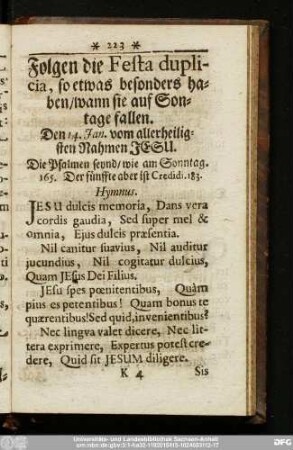 * 223 *
Folgen die Festa dupli-
cia, so etwas besonders ha-
ben/wann sie auf Son-
tage fallen.
Den 14. Jan. vom allerheilig-
sten Nahmen JESU.
Die Psalmen seynd/wie am Sonntag.
165. Der fünffte aber ist Credidi. 183.
Hymnus.
JESU dulcis memoria, Dans vera
cordis gaudia, Sed super mel &
omnia, Ejus dulcis præsentia.
Nil canitur suavius, Nil auditur
jucundius, Nil cogitatur dulcius,
Quam JEsus Dei Filius.
JEsu spes pœnitentibus, Quàm
pius es petentibus! Quam bonus te
quærentibus! Sed quid, invenientibus?
Nec lingva valet dicere, Nec lit-
tera exprimere, Expertus potest cre-
dere, Quid sit JESUM diligere.
K 4 Sis
Universitäts- und Landesbibliothek Sachsen-Anhalt
DFG